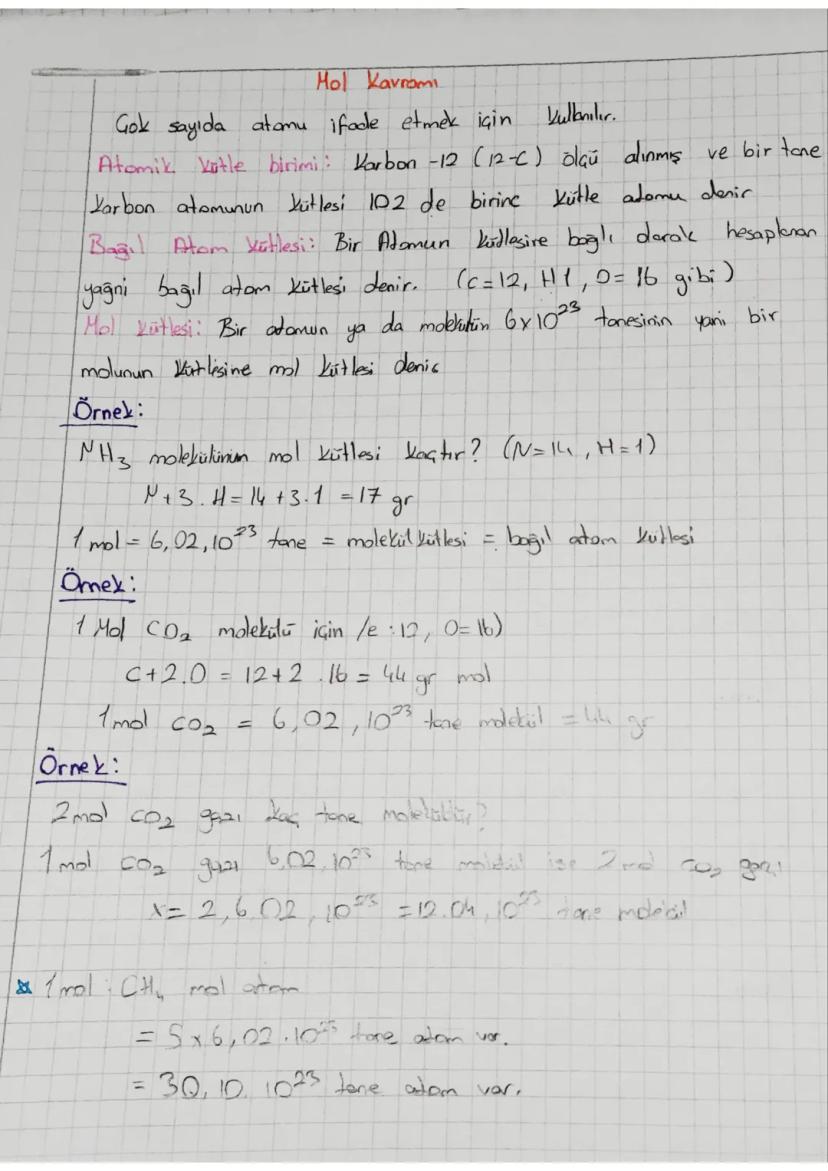 Mol Kavramı
Çok sayıda atomu ifade etmek için kullanılır.
Atomik kütle birimi: Karbon -12 (12-C) ölçü alınmış ve bir tane
karbon atomunun kütlesi 102 de birinc kütle atomu denir
Bağıl Atom kütlesi: Bir Atomun kütlesine bağlı olarak hesaplanan
yağni bağıl atom kütlesi denir. (C=12, H1, O=16 gibi)
Mol kütlesi: Bir atomun ya da molekülün 6x10²³ tanesinin yani bir
molunun kütlesine mol kütlesi denir
Örnek:
NH₃ molekülünün mol kütlesi kaçtır? (N=14, H=1)
N+3.H=14+3.1=17 gr
1 mol = 6,02,10²³ tane = molekül kütlesi = bağıl atom kütlesi
Örnek:
1 Mol CO₂ molekülü için /e:12, O=16)
C+2.O = 12+2.16 = 44 gr mol
1mol CO₂ = 6,02,10²³ tane molekül = 44 gr
Örnek:
2mol CO₂ gazı kaç tane moleküldür?
1mol CO₂ gazı 6,02.10²³ tane molekül ise 2mol CO₂ gazı
x= 2,6.02,10²³ =12.04,10²³ tane molekül
1mol CH₄ mol atom
= 5x6,02.10²³ tane atom var.
= 30,10.10²³ tane atom var.